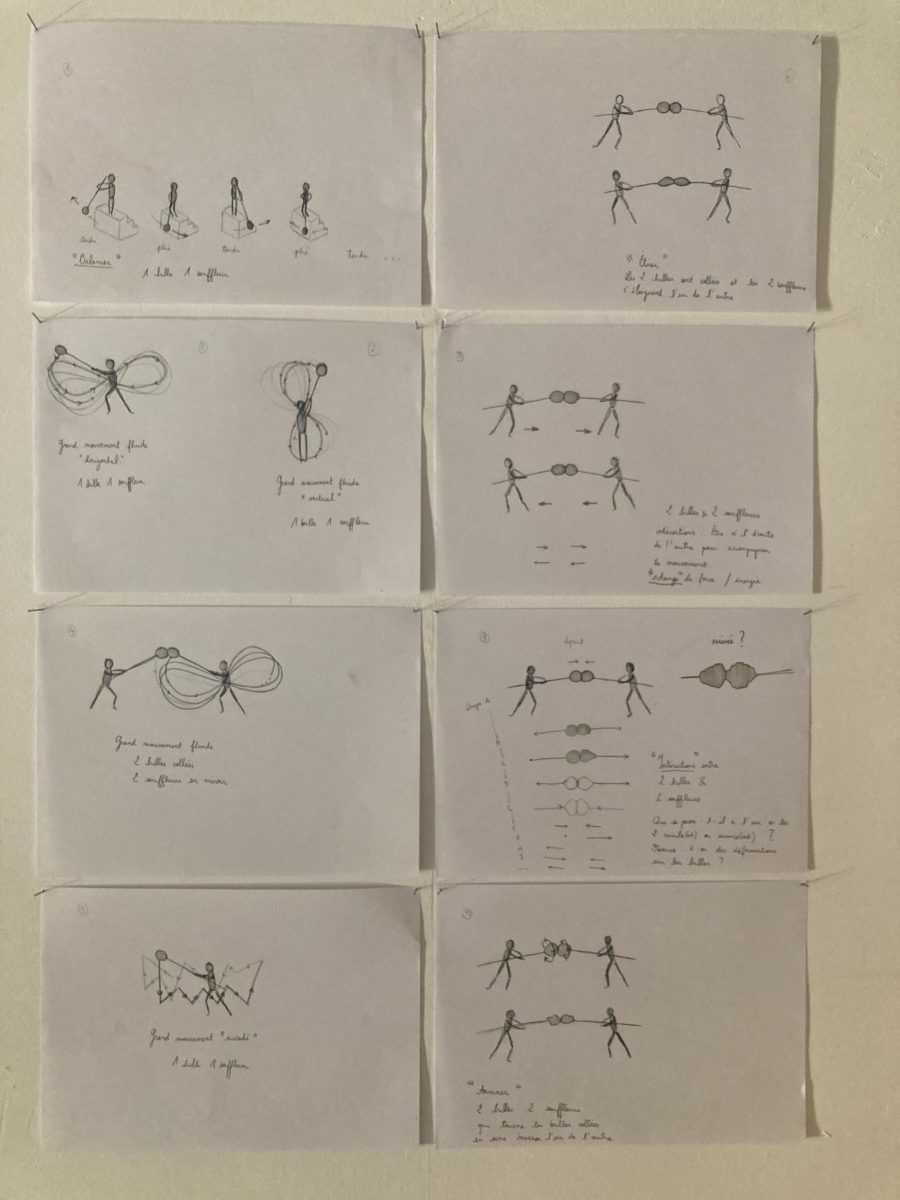 tendu
plié
tendu
plié
Tendu ...
"Balancer"
1 bulle 1 souffleur
"Étirer"
Les 2 bulles sont collées et les 2 souffleurs
s'éloignent l'un de l'autre
Grand mouvement fluide
"horizontal"
1 bulle 1 souffleur
Grand mouvement fluide
"vertical"
1 bulle 1 souffleur
2 bulles & 2 souffleurs
intéractions. Être à l'écoute
de l'autre pour accompagner
le mouvement.
"échange" de force / énergie
Grand mouvement fluide
2 bulles collées
2 souffleurs en miroir
départ
arrivée ?
"Intéractions" entre
2 bulles &
2 souffleurs
Que se passe-t-il si l'un ou les
2 recule(nt) ou avance(nt) ?
des déformations
sur les bulles ?
Grand mouvement "saccadé"
1 bulle 1 souffleur
"Tourner"
2 bulles 2 souffleurs
qui tourne les bulles collées
en sens inverse l'un de l'autre